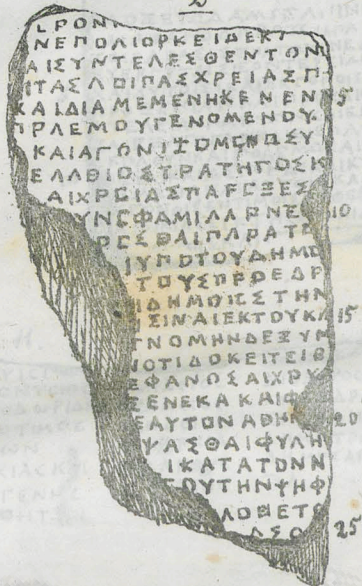 ΕΡΟΝ
ΝΕΠΟΛΙΟΡΚΕΙΔΕΚ
ΑΙΣΥΝΤΕΛΕΣΘΕΝΤΩΝ
ΙΤΑΣΛΟΙΠΑΣΧΡΕΙΑΣΠ
ΚΑΙΔΙΑΜΕΜΕΝΗΚΕΝΕΝ 5
ΠΡΛΕΜΟΥΓΕΝΟΜΕΝΟΥ
ΚΑΙΑΓΩΝΙ
ΕΛΛΘΙΟΣΤΡΑΤΗΓΟΣΚ
ΑΙΧΡΕΙΑΣΠΑΡΕΣΞΕΣ
10
ΣΘΑΙΠΑΡΑΤ
ΙΥΠΟΤΟΥΔΗΜΟ
ΤΟΥΣΠΡΟΕΔΡ
ΙΔΗΜΟΙΣΣΤΗΝ
ΣΙΝΑΙΕΚΤΟΥΚΛ 15
ΓΝΩΜΗΝΔΕΞΥΝ
ΝΟΤΙΔΟΚΕΙΤΕΙΒ
ΕΦΑΝΩΣΑΙΧΡΥ
ΕΝΕΚΑΚΑΙΦ
ΕΑΥΤΟΝΑΘΗΝ 20
ΨΑΣΘΑΙΦΥΛΗ
ΙΚΑΤΑΤΟΝΝ
ΤΟΥΤΗΝΨΗΦ
ΛΟΘΕΤ
ΛΣΟ 25